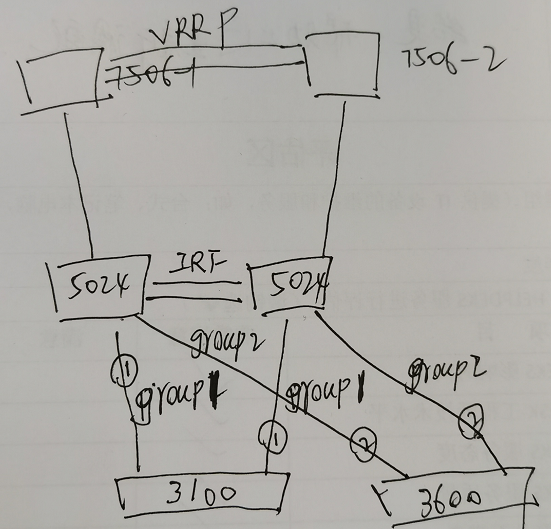 VRRP
7506-1
7506-2
IRF
5024
5024
group2
①
group1
group1
group2
①
②
②
3100
3600